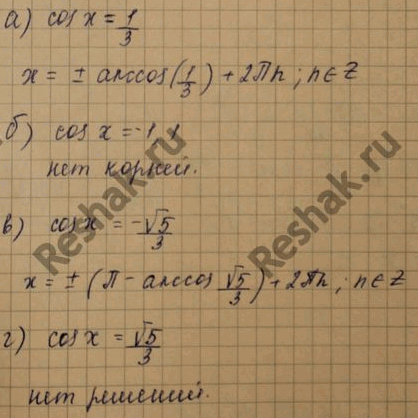 а) cos x = 1/3
x = ± arccos(1/3) + 2πn ; n ∈ Z
б) cos x = -1,1
нет корней.
в) cos x = -√5/3
x = ± (π - arccos √5/3) + 2πn ; n ∈ Z
г) cos x = √5/3
нет решений.
Reshak.ru
Reshak.ru